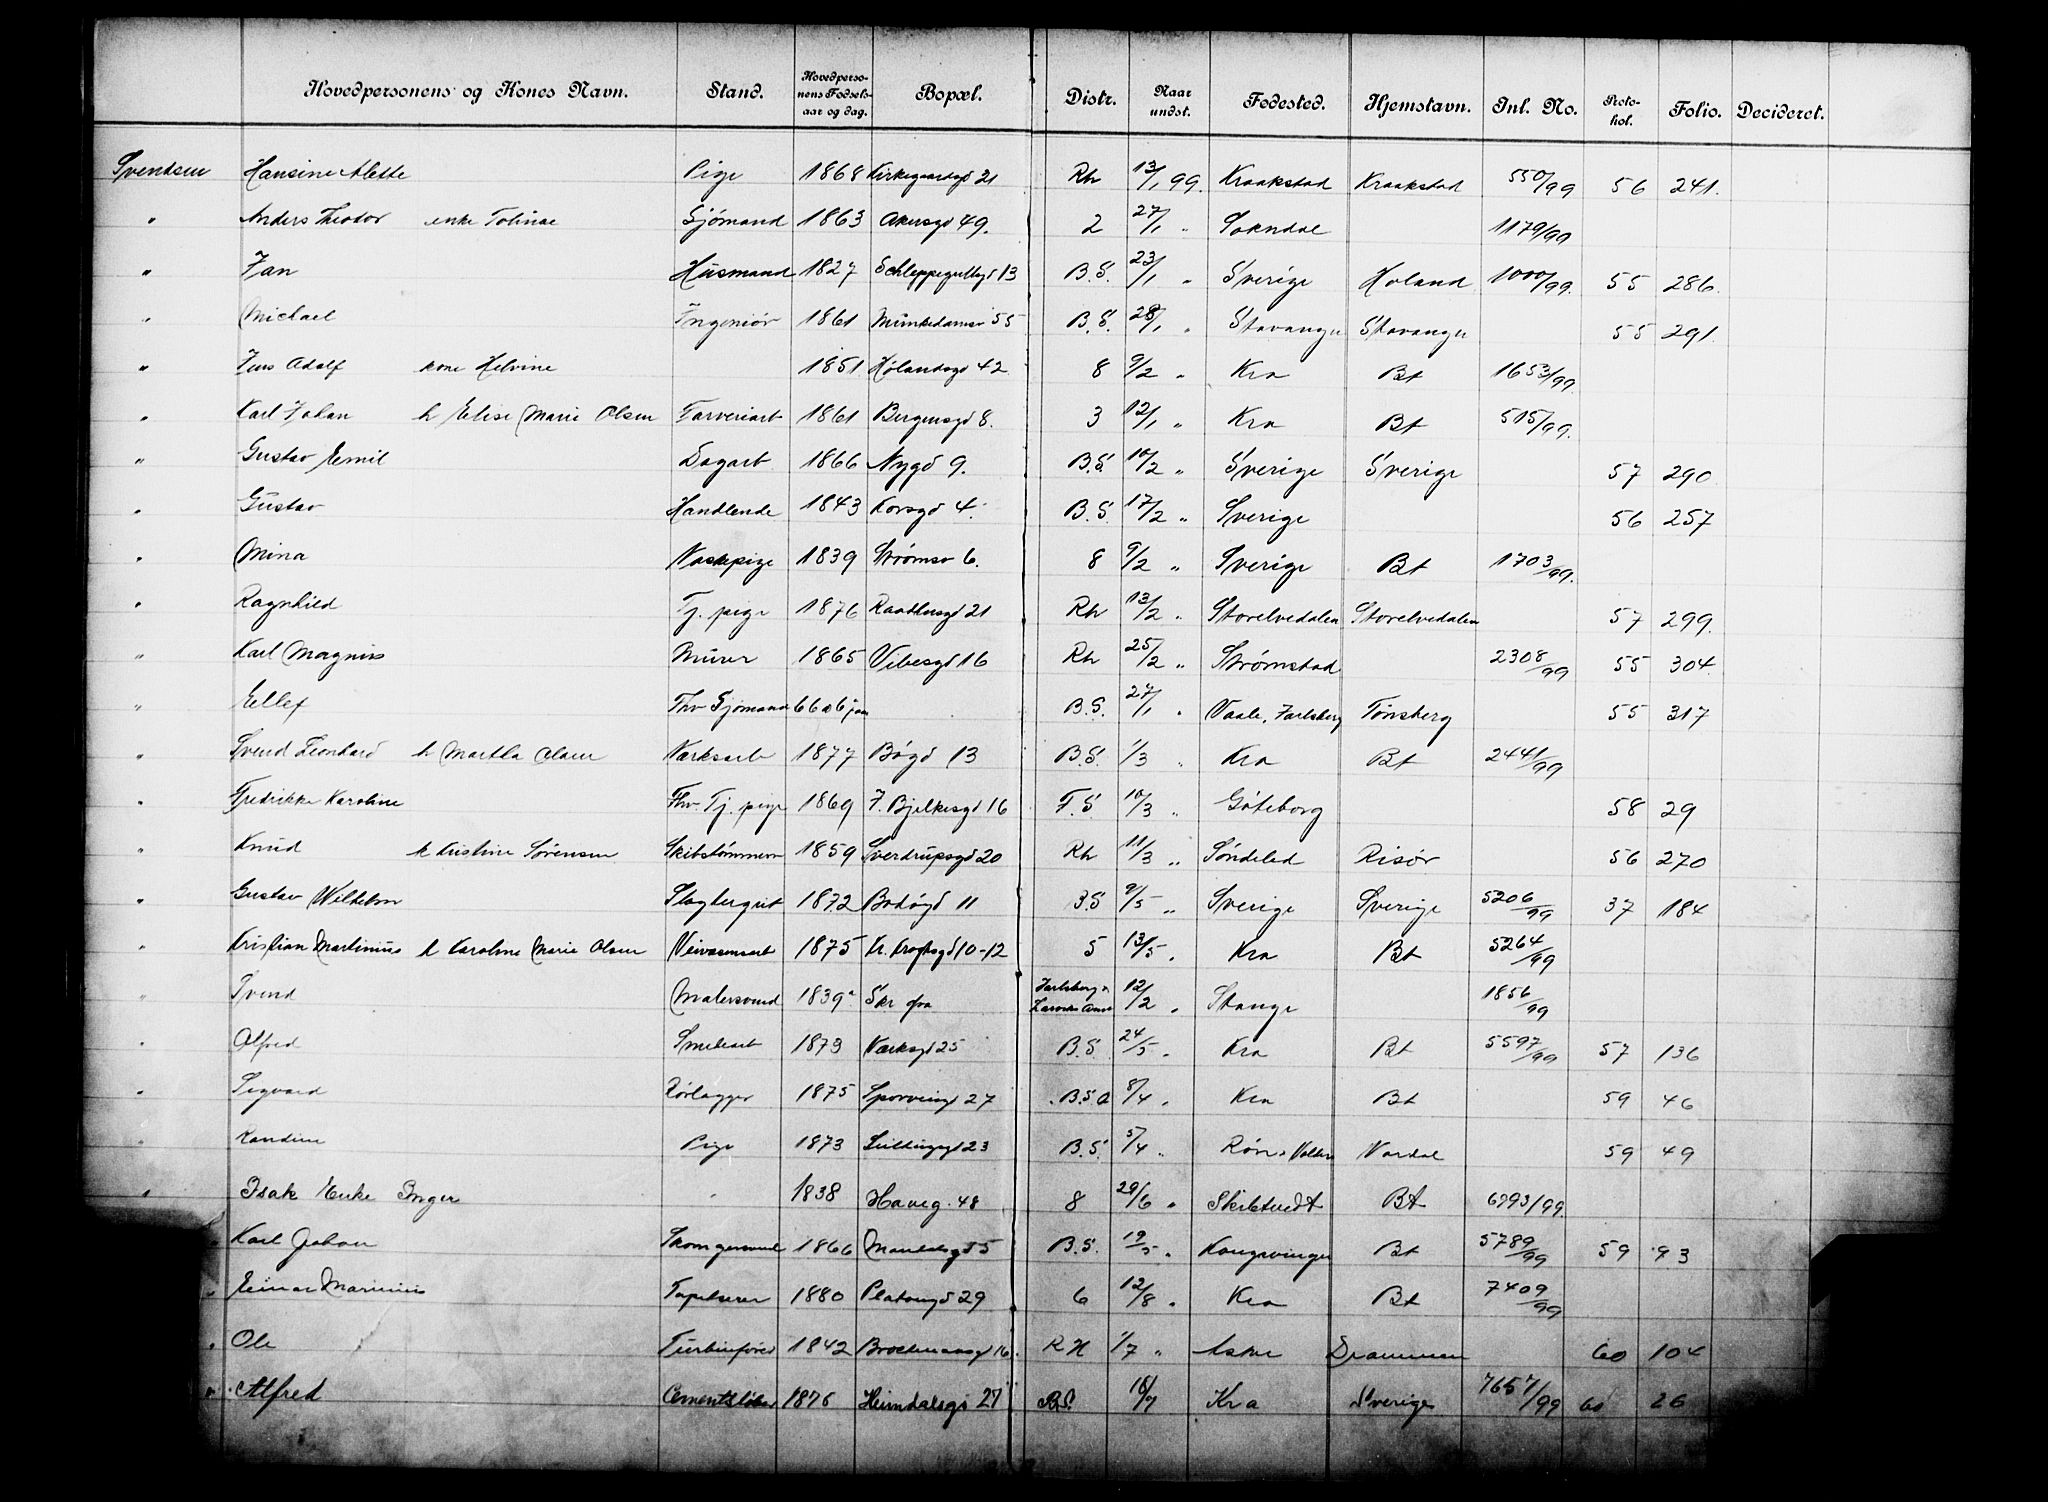 Hovedpersonens og Kones Navn. Stand. Hovedpersonens Fødselsaar og dag. Bopæl. Distr. Naar undst. Fødested. Hjemstavn. Inl. No. Protokol. Folio. Decideret.
Svendsen Hansine Alette Pige 1868 Kirkegaardsgd 21 Rh 13/1 99 Kraakstad Kraakstad 550/99 56 241.
" Anders Theodor enke Toline Sjömand 1863 Akersgd 49. 2 27/1 " Sokndal 1179/99
" Jan Husmand 1827 Schleppegrellsgd 13 B.S. 23/1 " Sverige Høland 1000/99. 55 286.
" Michael Ingeniör 1861 Munkedamsv 55 B.S. 28/1 " Stavanger Stavanger 55 291.
" Jens Adolf kone Helvine 1851 Hølandsgd 42 8 9/2 " Kra Bt 1653/99.
" Karl Johan h Elise Marie Olsen Farveriarb 1861 Bergensgd 8. 3 12/1 " Kra Bt 515/99.
" Gustav Emil Dagarb. 1866 Nygd 9. B.S. 10/2 " Sverige Sverige 57 290
" Gustav Handlende 1843 Korsgd 4. B.S. 17/2 " Sverige 56 257
" Mina Vaskepige 1839 Strømsv 6. 8 9/2 " Sverige Bt 1703/99.
" Ragnhild Tj. pige 1876 Raadhusgd 21 Rh 13/2 " Storelvedalen Storelvedalen 57 299.
" Karl Magnus Murer 1865 Vibesgd 16 Rh 25/2 " Strømstad 2308/99 55 304.
" Ellef Fhv Sjömand 66 a 6 jan B.S. 27/1 " Vaale, Jarlsberg Tönsberg 55 317
" Svend Leonhard h Martha Olsen Værksarb 1877 Bögd 13 B.S. 1/3 " Kra Bt 2441/99
" Fredrikke Karoline Fhv. Tj. pige 1869 J. Bjelkesgd 16 F.S 10/3 " Göteborg 58 29
" Knud h Kristine Sörensen Skibstömmerm 1859 Sverdrupsgd 20 Rh 11/3 " Söndeled Risör 56 270
" Gustav Wilhelm Slagtergut 1872 Bodögd 11 B.S 9/5 " Sverige Sverige 5206/99 37 184
" Kristian Martinius h Karoline Marie Olsen Veivæsensarb 1875 Kr. Kroghsgd 10-12 5 13/5 " Kra Bt 5264/99
" Svend Malersvend 1839 Skr fra Jarlsberg & Larviks Amt 12/2 " Stange 1856/99
" Alfred Smedearb 1879 Værksgd 25 B.S. 24/5 " Kra Bt 5597/99 57 136
" Sigvard Rörlægger 1875 Sporveisgd 27 B.S.A 8/4 " Kra Bt 59 46
" Randine Pige 1873 23 B.S. 5/4 " Vardal 59 49
" Isak Enke Inger " 1838 Haveg. 48 8 29/6 " Skibtvedt Bt 6793/99.
" Karl Johan Skomagersvend 1866 Mandalsgd 5 B.S. 19/5 " Kongsvinger Bt 5789/99 59 93
" Einar Marinius Tapetserer 1880 Platousgd 29 6 12/8 " Kra Bt 7409/99
" Ole Turbinfører 1842 Brochmannsgd 16 R H 1/7 " Asker Drammen 60 104
" Alfred Cementstøber 1876 Heimdalsgd 27 B.S. 18/7 Kra Sverige 7657/99 60 26